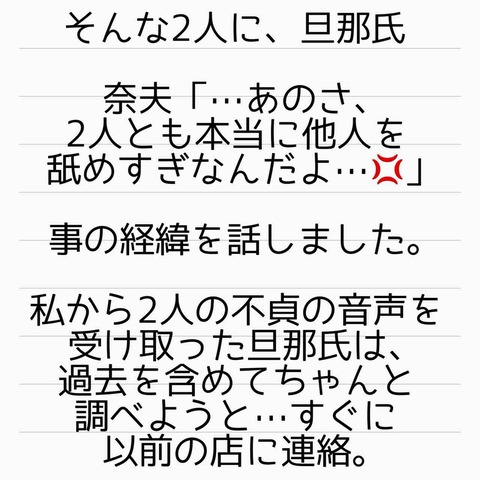 そんな2人に、旦那氏
奈夫「…あのさ、
2人とも本当に他人を
舐めすぎなんだよ…💢」
事の経緯を話しました。
私から2人の不貞の音声を
受け取った旦那氏は、
過去を含めてちゃんと
調べようと…すぐに
以前の店に連絡。